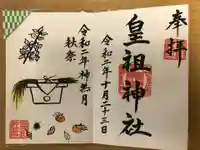 奉拝
皇祖神社
令和二年十月二十三日
令和二年神無月
秋祭